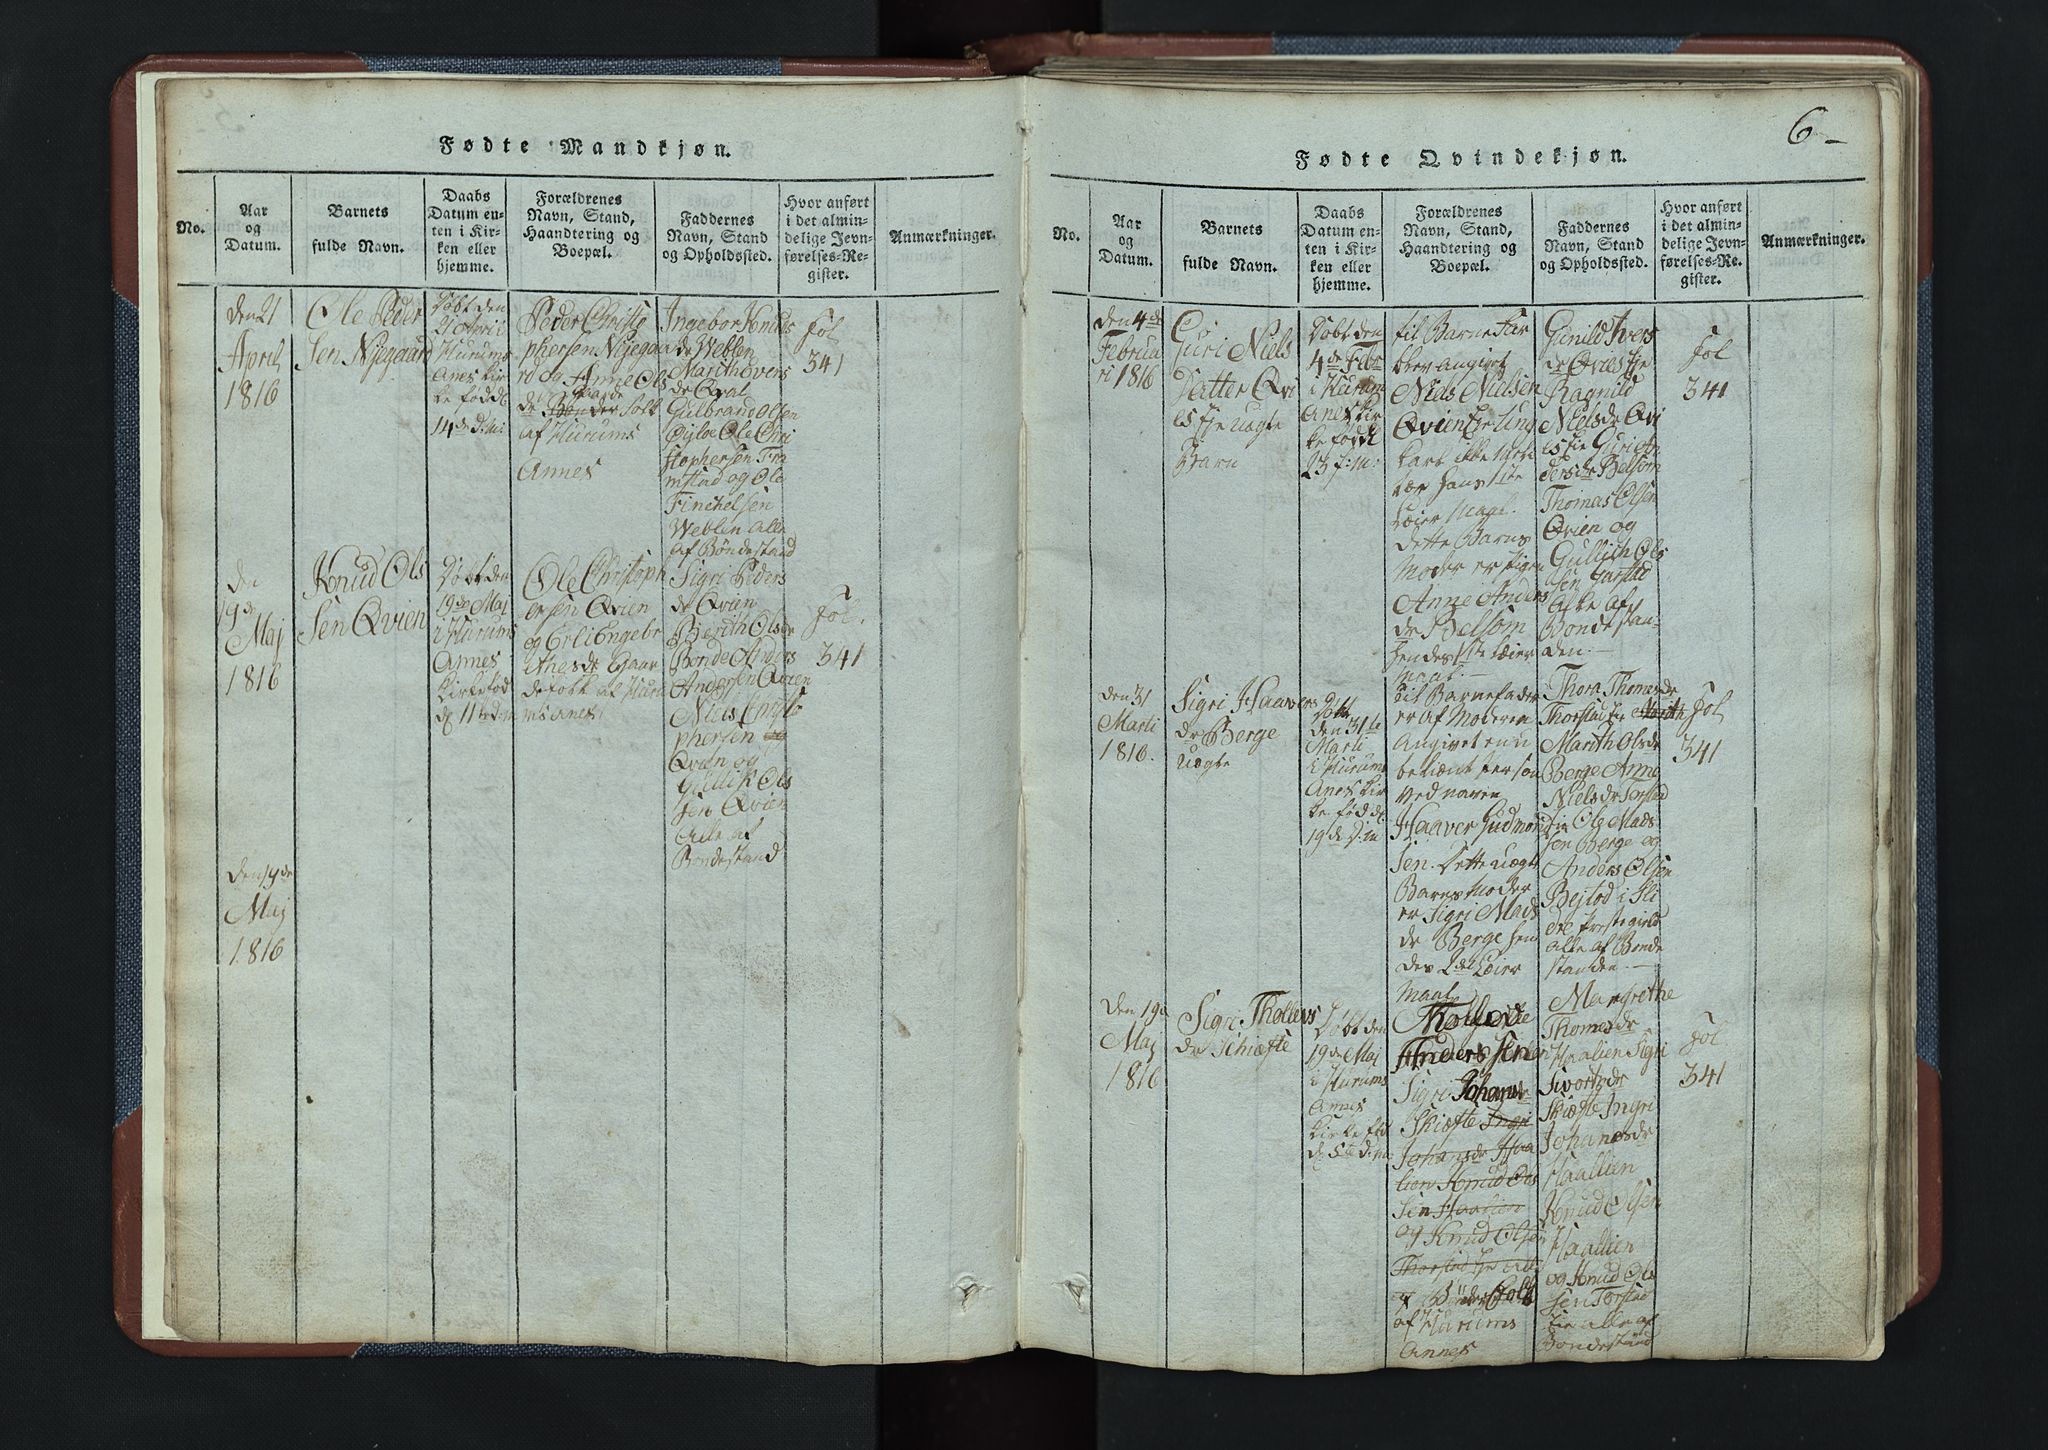 Fødte Mandkjøn.
No.
Aar
og
Datum.
Barnets
fulde Navn.
Daabs
Datum en-
ten i Kir-
ken eller
hjemme.
Forældrenes
Navn, Stand,
Haandtering og
Boepæl.
Faddernes
Navn, Stand
og Opholdssted.
Hvor anført
i det almin-
delige Jevn-
førelses-Re-
gister.
Anmærkninger.
den 21
April
1816
Ole Peder
Sen Nÿegaard
Døbt den
21 April
i Hurums
Anes Kir
ke född
14de d: m:
Peder Christo
phersen Nÿegaa
rd og Anne Ols
de Bønder folk
af Hurums
Annes
Ingebor Knuds
de Weblen
Marith Overs
de Qval
Gulbrand Olsen
Øÿloe Ole Chri
stophersen Fra
mstad og Ole
Finchelsen
Weblen alle
af Bøndestand
Fol
341
den
19de
Maj
1816
Knud Ols
Sen Qvien
Døbt den
19de Maj
i Hurums
Annes
Kirke föd
Ole Christoph
ersen Qvien
og Erli Engebr
Sigri Peders
dr Qvien
Berith Olsdr
Bonde Anders
Andersen Qvien
Niels Christo
phersen og
Qvien og
Gullik Ols
sen Qvien
Alle af
Bondestand
Fol.
341
den 19de
Maj
1816
6-
Fødte Qvindekjøn.
No.
Aar
og
Datum.
Barnets
fulde Navn.
Daabs
Datum en-
ten i Kir-
ken eller
hjemme.
Forældrenes
Navn, Stand,
Haandtering og
Boepæl.
Faddernes
Navn, Stand
og Opholdssted.
Hvor anført
i det almin-
delige Jevn-
førelses-Re-
gister.
Anmærkninger.
den 4de
Februa
ri 1816
Guri Niels
Datter Qvi
es Eje uægte
Barn
Døbt den
4de Febr
i Hurum
Anes Kir
ke född
23 f: m:
til Barne Far
blev angivet
Niels Nielsen
Qvien Eje Ung
karl ikke
hans 1te
Leier Maal.
dette Barns
Moder er Pigen
Anne Anders
dr Belsom
hendes 1te Leier
maal.
Gunild Ivers
dr Qvies Eje
Ragnild
Nielsdr Qvi
es Eie Guri An
dersdr Belsom
Thomas Olsen
Qvien og
Gullich Ols
sen Garstad
Alle af
Bondestan-
den.
Fol
341
den 31
Marti
1816.
Sigri Haavers
dr Berge
uægte
Døbt
den 31te
Marti
i Hurums
Anes Kir
ke föd d.
19de D: m
til Barnefader
er af Moderen
Angivet en u
bekiænt Person
ved naven
Haaver Gudmond
sen. Dette uægte
Barns Moder
er Sigri Mads
dr Berge hen
des 2det Leier
maal
Thora Thomesdr
Thorstad Eie Marith
Marith Olsdr
Berge Anne
Nielsdr Torstad
Eie Ole Mads
sen Berge og
Anders Olsen
Bejtod i Sli
dre Prestegield
alle af Bonde
standen.
Fol
341
den 19de
Maj
1816
Sigri Tholfers
dr Schiefte
Døbt den
19de Maj
i Hurums
Annes
Kirke föd
d. 5te D: m:
Andersen
Sigri Johansdr
Skiefte Ingri
Johansdr Haa
lien Knud Ols
Sen Haalien
og Knud Olsen
Thorstad Eje alle
af Bønder Folk
af Hurums
Annes
Margrethe
Thomesdr
Haalien Sigri
Sivertsdr
Skiefte Ingri
Johanesdr
Haalien
Knud Olsen
Haalien
og Knud Ols
sen Torstad
Eie alle af
Bondestand
Fol
341